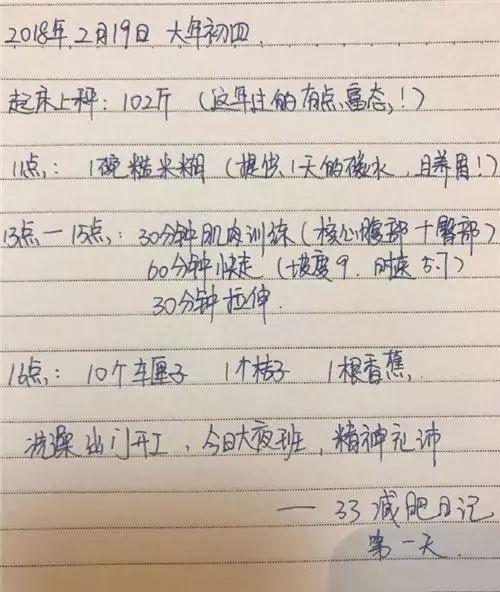 2018年2月19日 大年初四.
起床上秤：102斤（这年过的有点富态！）
11点：1碗糙米糊（提供1天的碳水，且养胃！）
13点一15点：30分钟肌肉训练（核心腹部+臀部）
60分钟快走（坡度9.时速5.7）
30分钟拉伸.
16点：10个车厘子 1个桔子 1根香蕉,
洗澡出门开工，今日大夜班，精神充沛
— 33减肥日记
第一天.